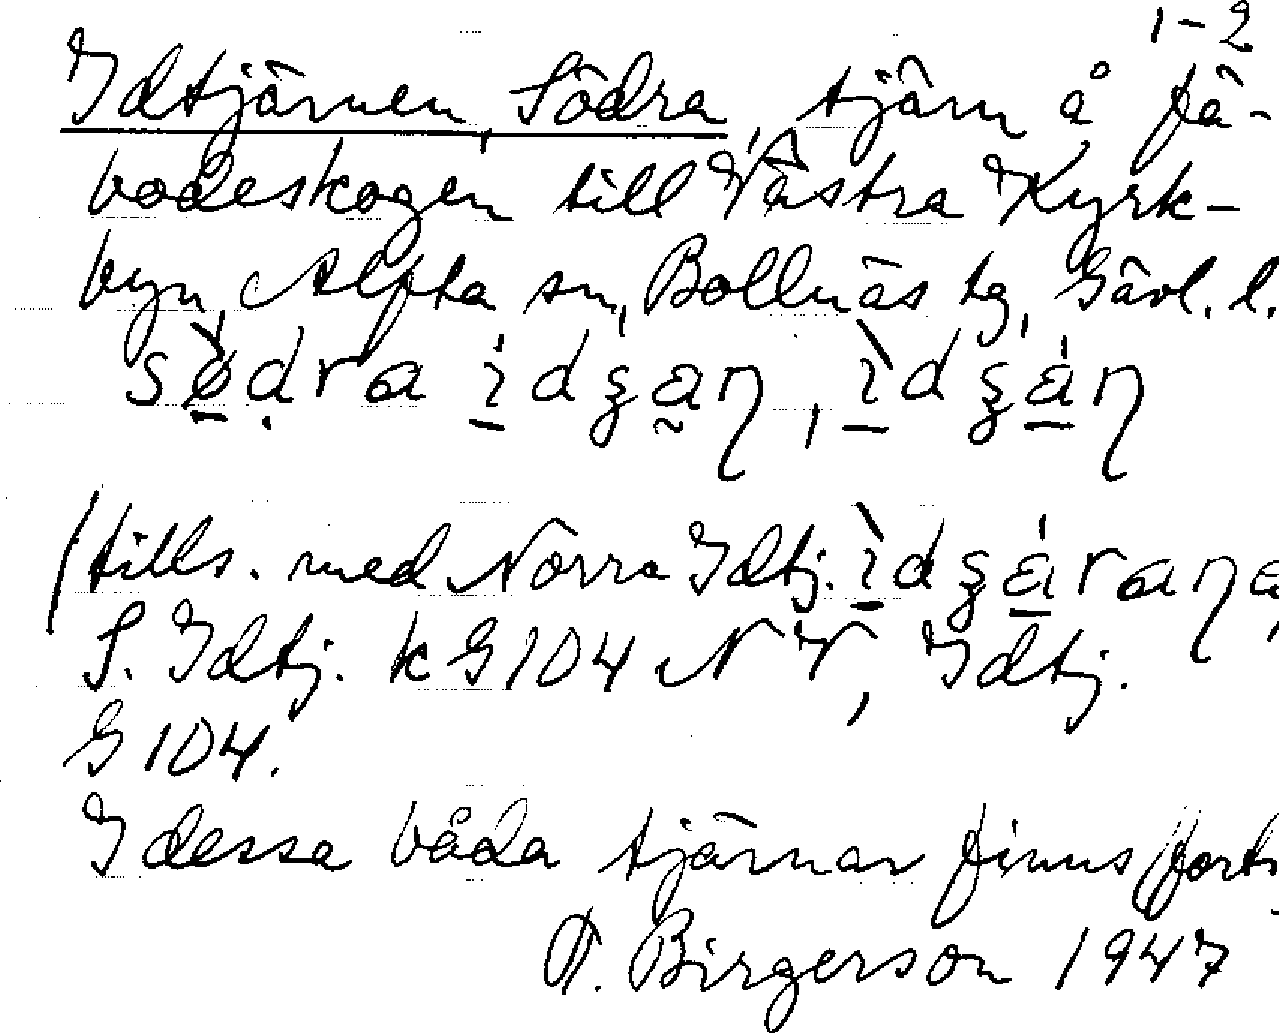 1-2
Idtjärnen, Södra, tjärn å fä-
bodeskogen till Västra Kyrk-
byn, Alfta sn, Bollnäs tg, Gävl. l.
sø̀dra ídʒan, ìdʒán
(tills. med Norra Idtj. ìdʒárana,
S. Idtj. k G104 NV, Idtj.
G104.
I dessa båda tjärnar finns (forts.
A. Birgerson 1947